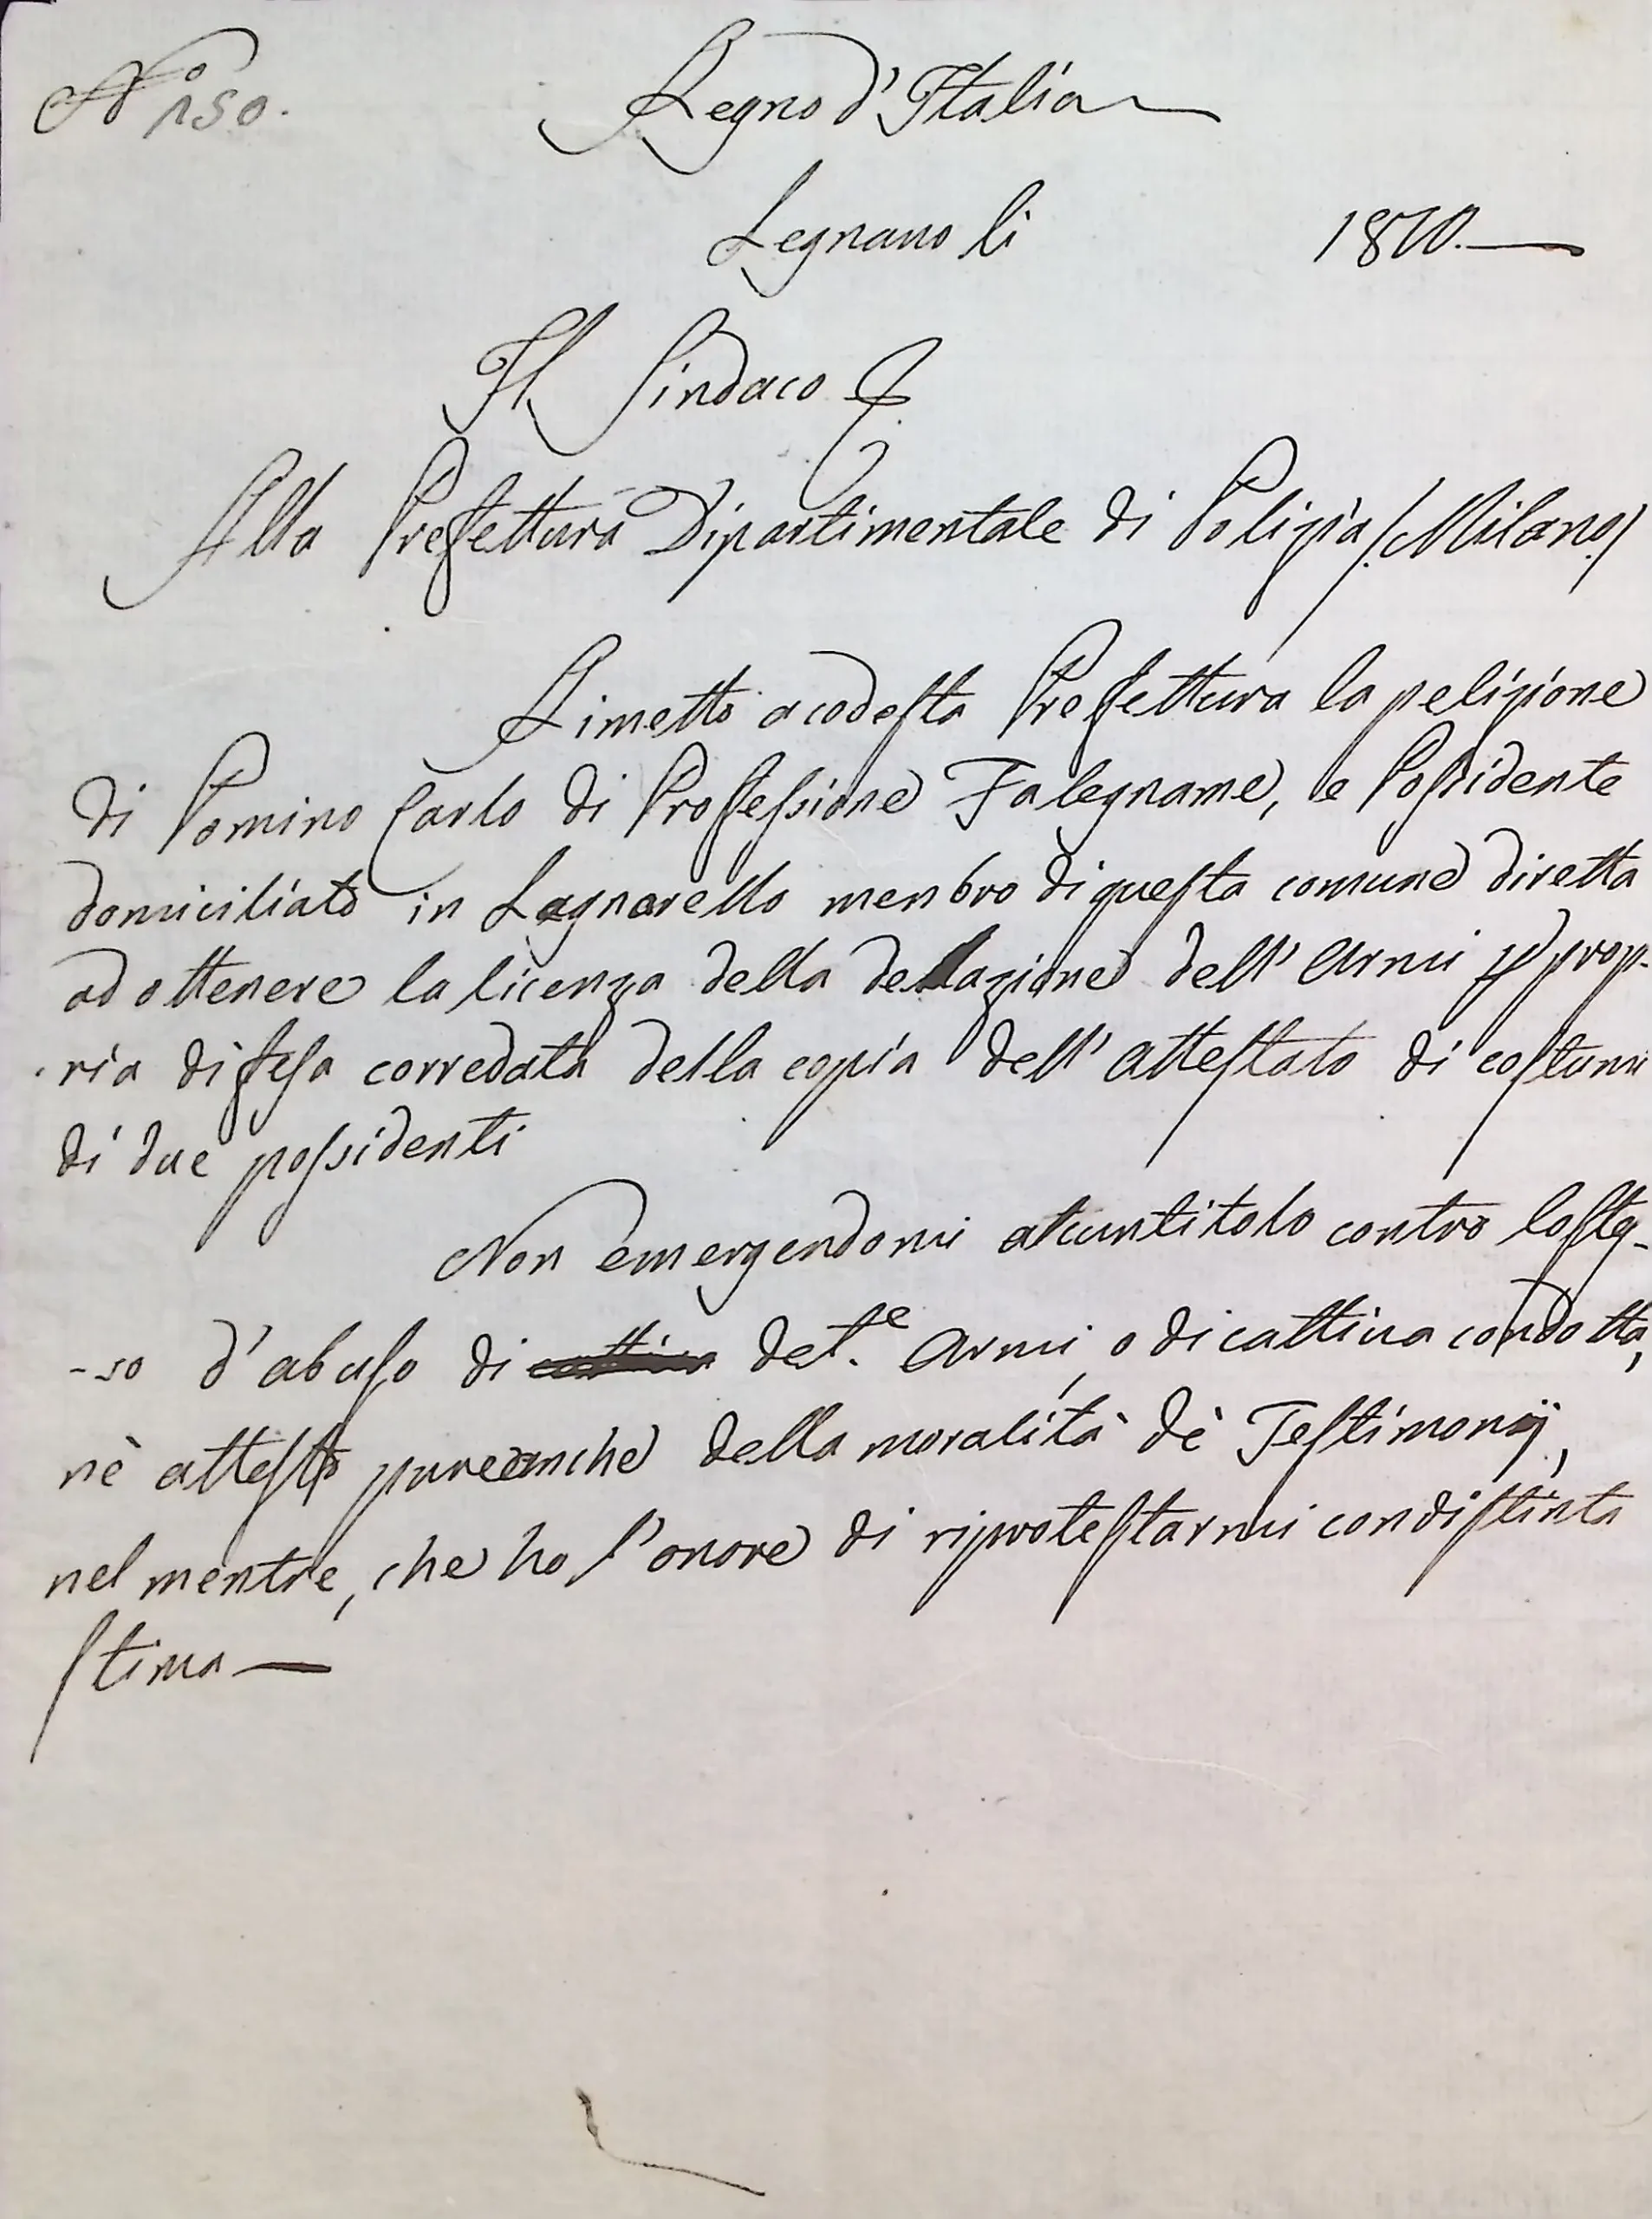 N.o 150.
Regno d'Italia
Legnano li 1810.
Il Sindaco
Alla Prefettura Dipartimentale di Polizia /Milano/
Rimetto a codesta Prefettura la pelizione
di Pomino Carlo di Professione Falegname, e Possidente
domiciliato in Legnarello menbro di questa comune diretta
ad ottenere la licenza della delazione dell' Armi per prop-
ria difesa corredata della copia dell' attestato di costumi
di due possidenti
Non emergendomi alcun titolo contro lo ste-
-so d'abuso di cattiva det.e Armi, o di cattiva condotta,
nè attesto pure anche della moralità dè Testimonij,
nel mentre, che ho l'onore di riprotestarmi con distinta
stima